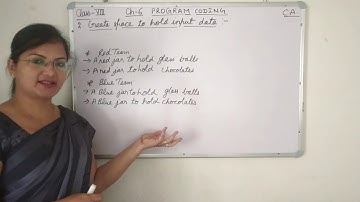 Class-VIII Ch-6 PROGRAM CODING CA
2. Create space to hold input data :-
* Red Team
→ A red jar to hold glass balls
→ A red jar to hold chocolates
* Blue Team
→ A Blue jar to hold glass balls
→ A Blue jar to hold chocolates